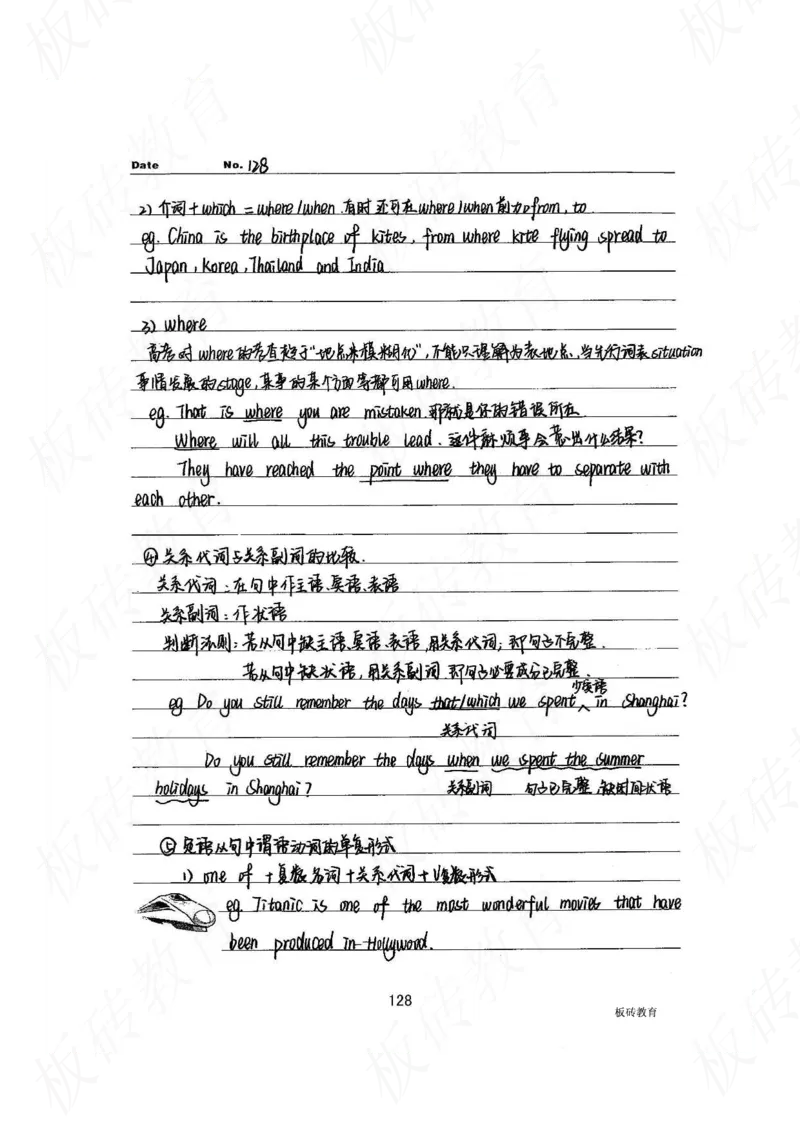 Date No. 128
2) 介词+which = where/when 有时还可在where/when前加from, to
eg. China is the birthplace of kites, from where kite flying spread to
Japan, Korea, Thailand and India
3) where
高考对where的考查趋于"地点来模糊化", 不能只理解为表地点, 当先行词表situation
事情发展的stage, 某事的某个方面等都可用where.
eg. That is where you are mistaken. 那就是你的错误所在
Where will all this trouble lead. 这件麻烦事会惹出什么结果?
They have reached the point where they have to separate with
each other.
④关系代词与关系副词的比较.
关系代词: 在句中作主语、宾语、表语
关系副词: 作状语
判断法则: 若从句中缺主语、宾语、表语, 用关系代词; 即句子不完整.
若从句中缺状语, 用关系副词. 即句子必要成分已完整.
少宾语
eg Do you still remember the days that/which we spent ^ in Shanghai?
关系代词
Do you still remember the days when we spent the summer
holidays in Shanghai? 关系副词 句子已完整 缺时间状语
⑤定语从句中谓语动词的单复形式
1) one of +复数名词+关系代词+V复数形式
eg. Titanic is one of the most wonderful movies that have
been produced in Hollywood.
128
板砖教育